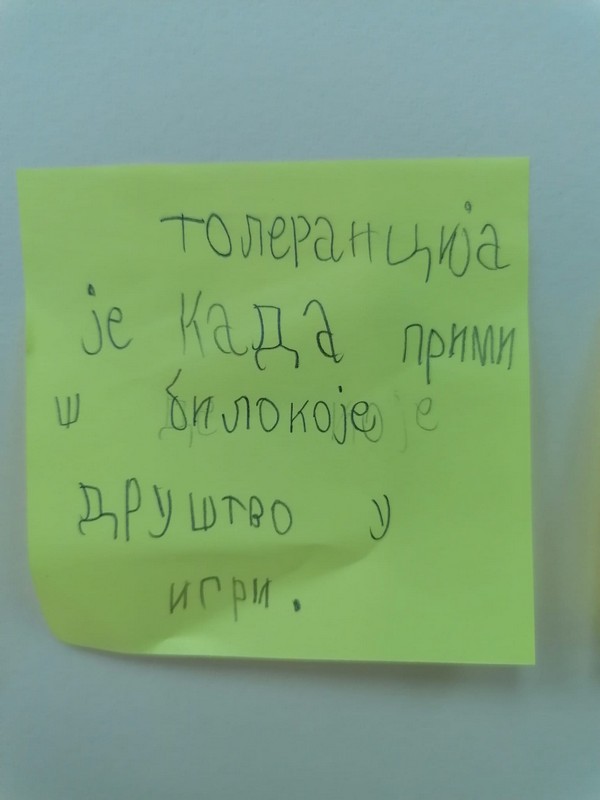 толеранција
је када прими
ш билокоје
друштво у
игри.